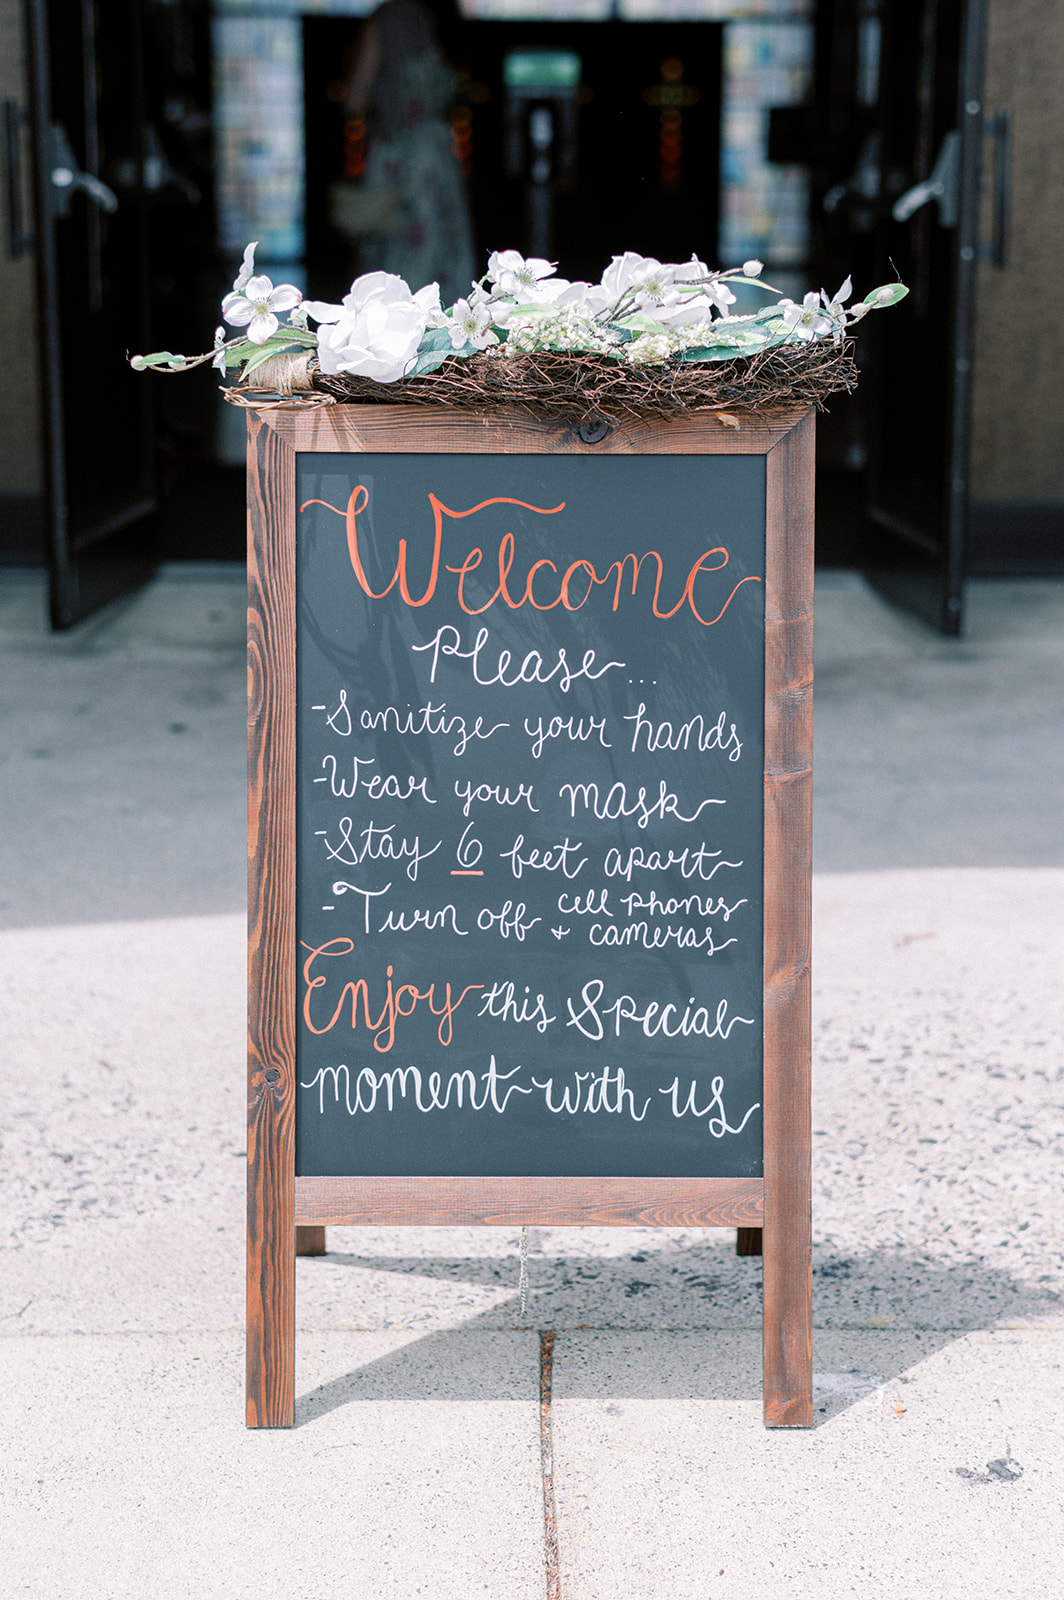 Welcome
Please...
-Sanitize your hands
-Wear your mask
-Stay 6 feet apart
-Turn off cell phones
+ cameras
Enjoy this special
moment with us